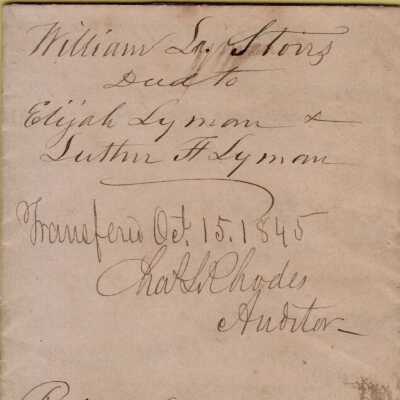 William
Deed to
Elijah Lyman &
Luther H Lyman
Transfered Oct. 15. 1845
Chas L Rhodes
Auditor